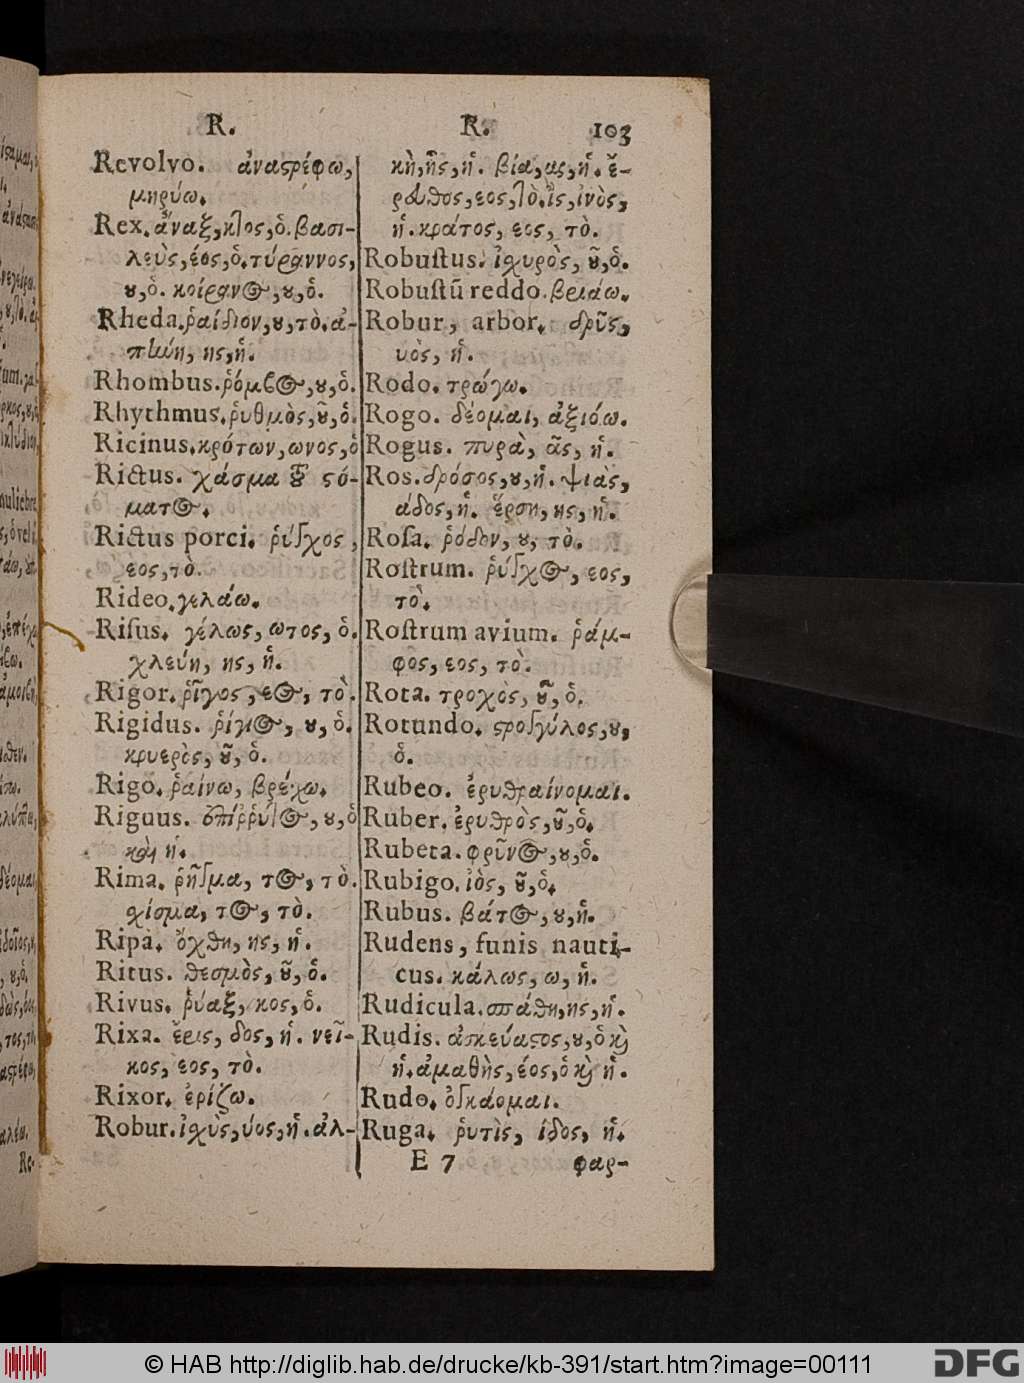 R.
R. 103
Revolvo. ἀναςρέφω,
μηρύω.
Rex. ἄναξ, κτος, ὁ. βασι-
λεὺς, έος, ὁ. τύραννος,
ȣ, ὁ. κοίρανος, ȣ, ὁ.
Rheda. ῥαίδιον, ȣ, τὸ. ἀ-
πήνη, ης, ἡ.
Rhombus. ῥόμβος, ȣ, ὁ.
Rhythmus. ῥυθμὸς, ȣ͂, ὁ.
Ricinus. κρότων, ωνος, ὁ
Rictus. χάσμα τȣ͂ ςό-
ματος.
Rictus porci. ῥύγχος,
εος, τὸ.
Rideo. γελάω.
Risus. γέλως, ωτος, ὁ.
χλεύη, ης, ἡ.
Rigor. ῥῖγος, εος, τὸ.
Rigidus. ῥίγιος, ȣ, ὁ.
κρυερὸς, ȣ͂, ὁ.
Rigo. ῥαίνω, βρέχω.
Riguus. ἐπίῤῥυτος, ȣ, ὁ
καὶ ἡ.
Rima. ῥῆγμα, τος, τὸ.
χίσμα, τος, τὸ.
Ripa. ὄχθη, ης, ἡ.
Ritus. θεσμὸς, ȣ͂, ὁ.
Rivus. ῥύαξ, κος, ὁ.
Rixa. ἔρις, δος, ἡ. νεῖ-
κος, εος, τὸ.
Rixor. ἐρίζω.
Robur. ἰχὺς, ύος, ἡ. ἀλ-
κὴ, ῆς, ἡ. βία, ας, ἡ. ἔ-
ρȣθος, εος, τὸ. ἲς, ἰνὸς,
ἡ. κράτος, εος, τὸ.
Robustus. ἰχυρὸς, ȣ͂, ὁ.
Robustũ reddo. βριάω.
Robur, arbor. δρῦς,
υὸς, ἡ.
Rodo. τρώγω.
Rogo. δέομαι, ἀξιόω.
Rogus. πυρὰ, ᾶς, ἡ.
Ros. δρόσος, ȣ, ἡ. ψιὰς,
άδος, ἡ. ἕρση, ης, ἡ.
Rosa. ῥόδον, ȣ, τὸ.
Rostrum. ῥύγχος, εος,
τὸ.
Rostrum avium. ῥάμ-
φος, εος, τὸ.
Rota. τροχὸς, ȣ͂, ὁ.
Rotundo. ςρογγύλος, ȣ,
ὁ.
Rubeo. ἐρυθραίνομαι.
Ruber. ἐρυθρὸς, ȣ͂, ὁ.
Rubeta. φρῦνος, ȣ, ὁ.
Rubigo. ἰὸς, ȣ͂, ὁ.
Rubus. βάτος, ȣ, ἡ.
Rudens, funis nauti-
cus. κάλως, ω, ἡ.
Rudicula. σπάθη, ης, ἡ.
Rudis. ἀσκεύαςος, ȣ, ὁ κỳ
ἡ. ἀμαθὴς, έος, ὁ κỳ ἡ.
Rudo. ὀγκάομαι.
Ruga. ῥυτὶς, ίδος, ἡ.
E 7 φαρ-
© HAB http://diglib.hab.de/drucke/kb-391/start.htm?image=00111
DFG